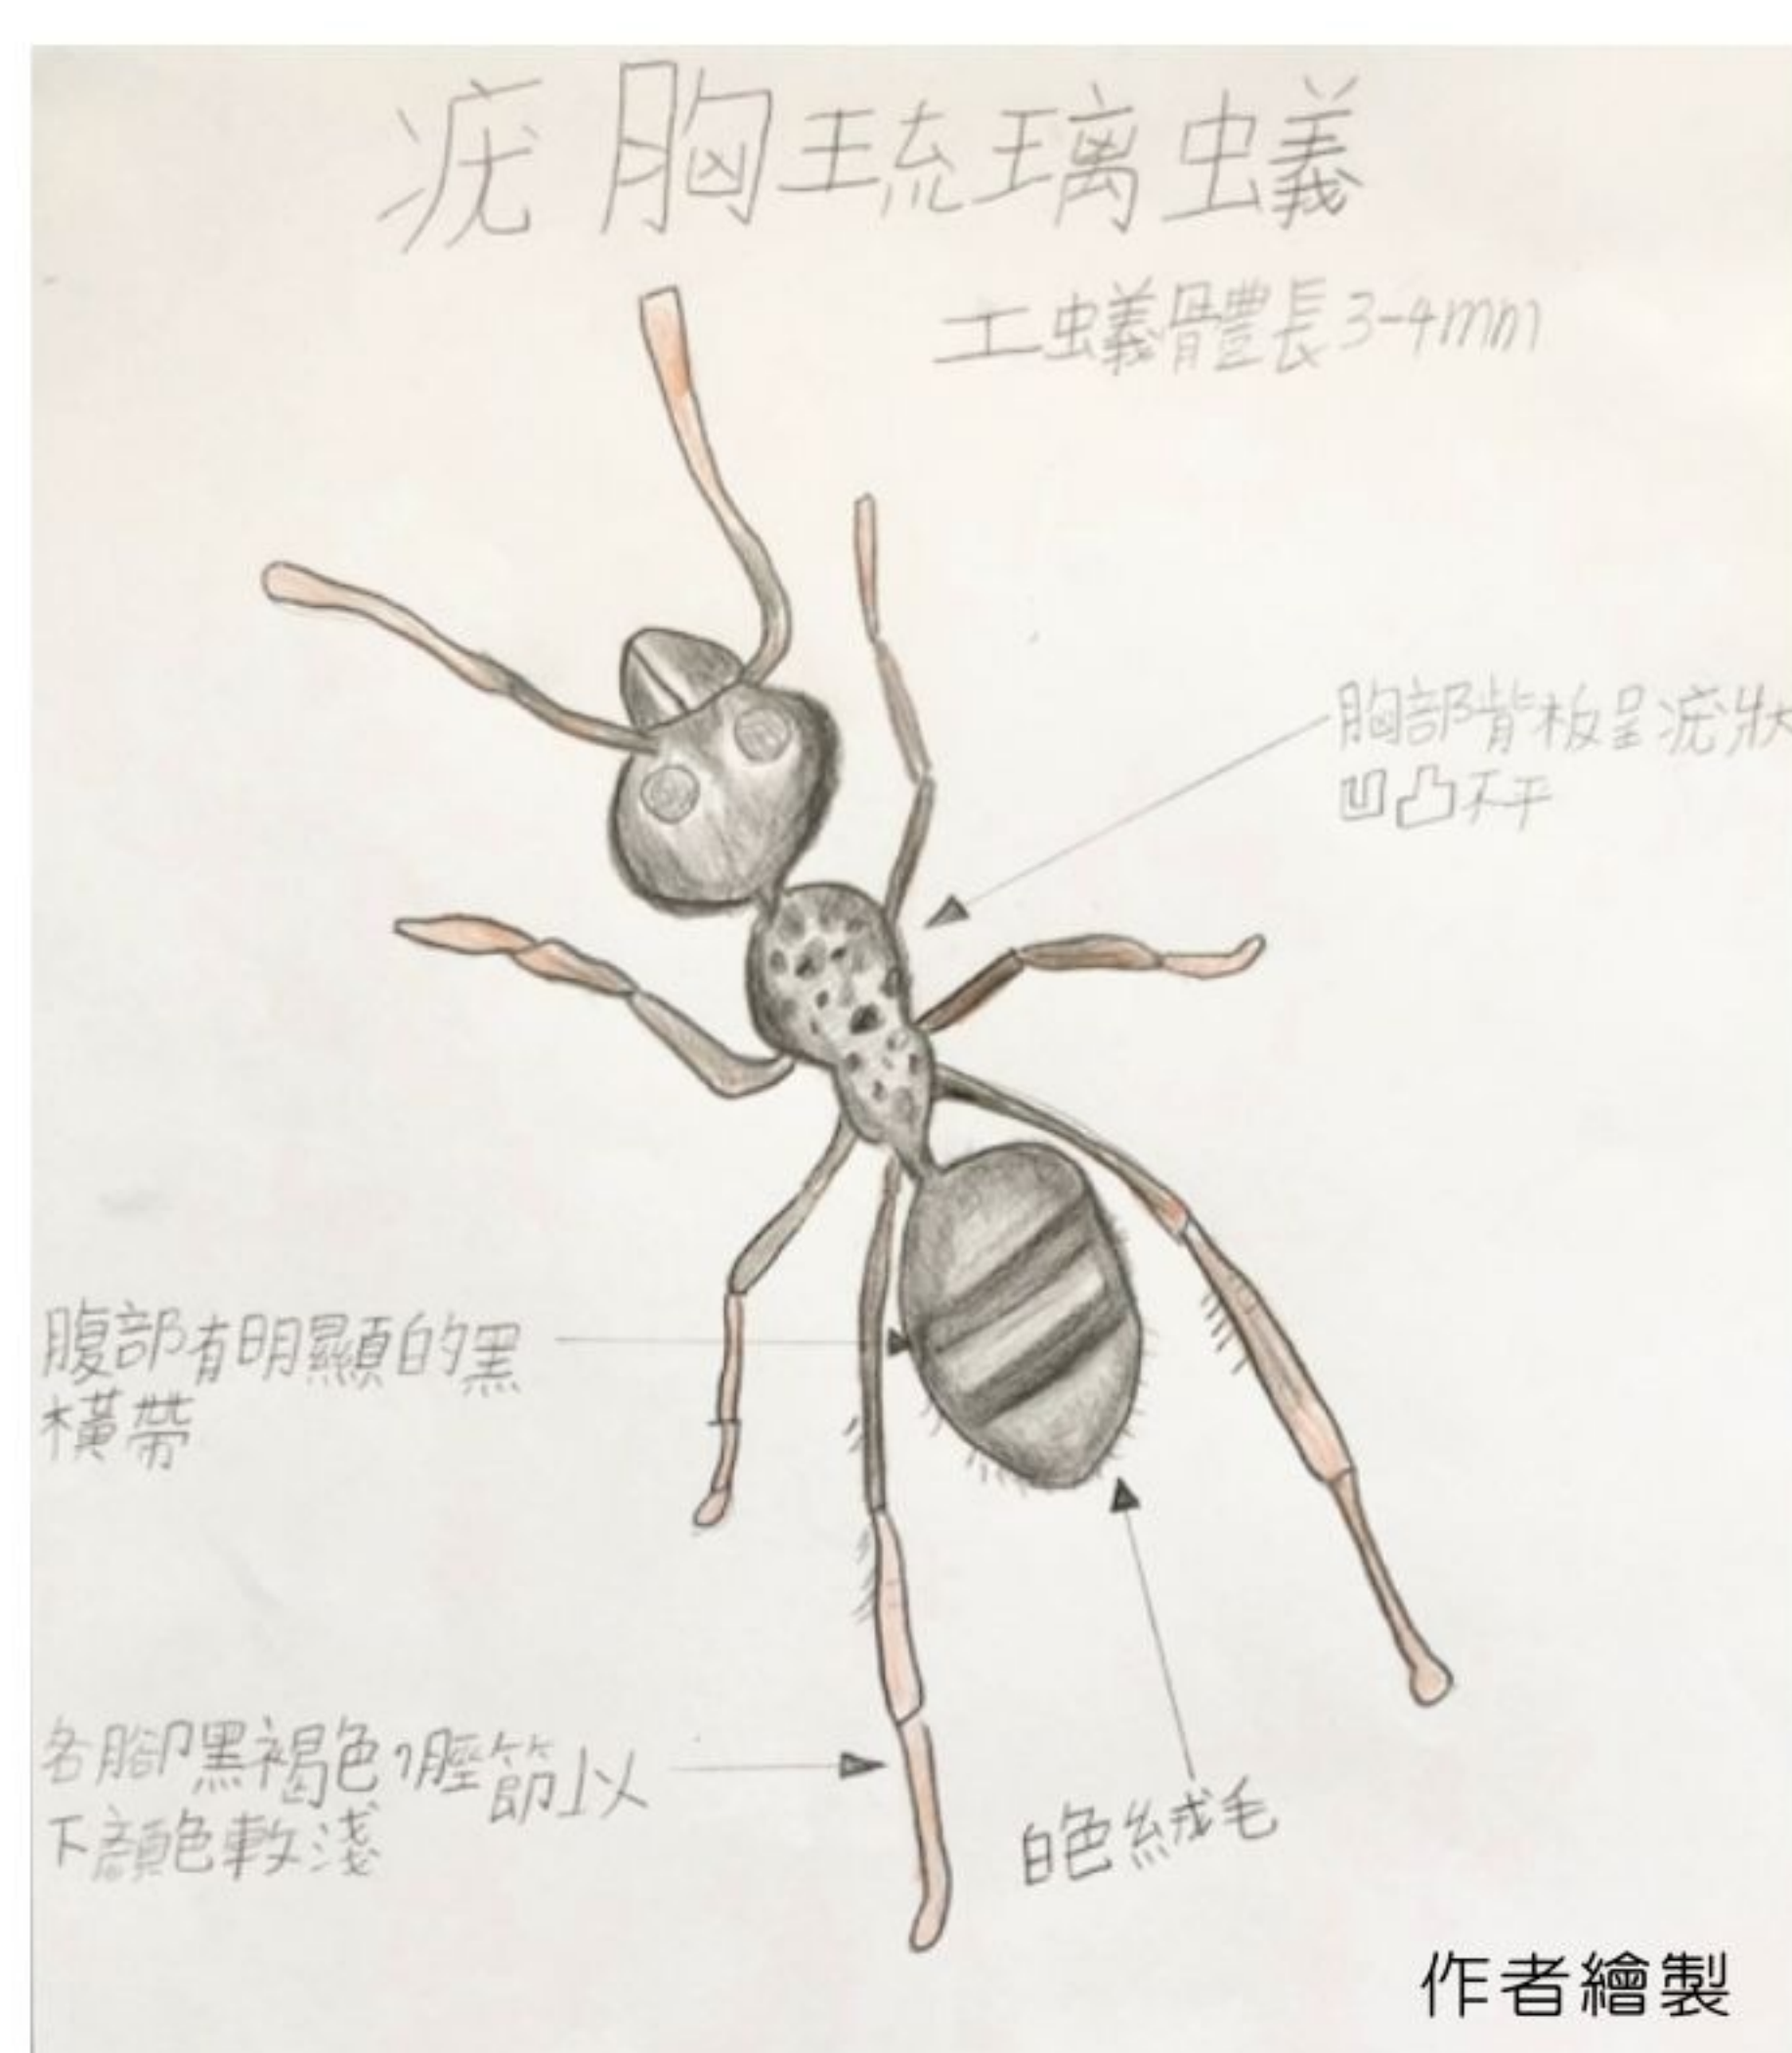 疣胸琉璃蟻
工蟻體長3-4mm
胸部背板呈疣狀
凹凸不平
腹部有明顯的黑
橫帶
各腳黑褐色,脛節以
下顏色較淺
白色絨毛
作者繪製